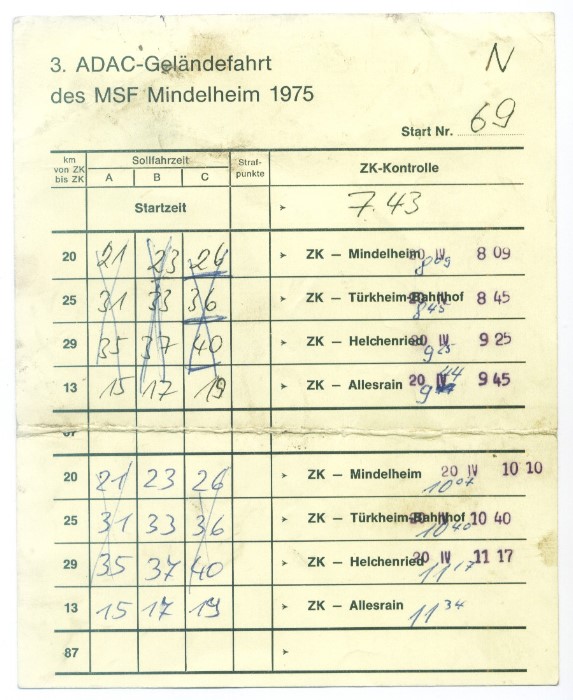 3. ADAC-Geländefahrt N
des MSF Mindelheim 1975
Start Nr. 69
km von ZK bis ZK Sollfahrzeit Straf-punkte ZK-Kontrolle
A B C
Startzeit ➤ 7.43
20 21 23 26 ➤ ZK — Mindelheim 20 IV 8 09 8 09
25 31 33 36 ➤ ZK — Türkheim-Bahnhof 8 45 8 45
29 35 37 40 ➤ ZK — Helchenried 20 IV 9 25 9 25
13 15 17 19 ➤ ZK — Allesrain 20 IV 9 45 9 44
87
20 21 23 26 ➤ ZK — Mindelheim 20 IV 10 10 10 07
25 31 33 36 ➤ ZK — Türkheim-Bahnhof 10 40 10 40
29 35 37 40 ➤ ZK — Helchenried 20 IV 11 17 11 17
13 15 17 19 ➤ ZK — Allesrain 11 34
87 ➤